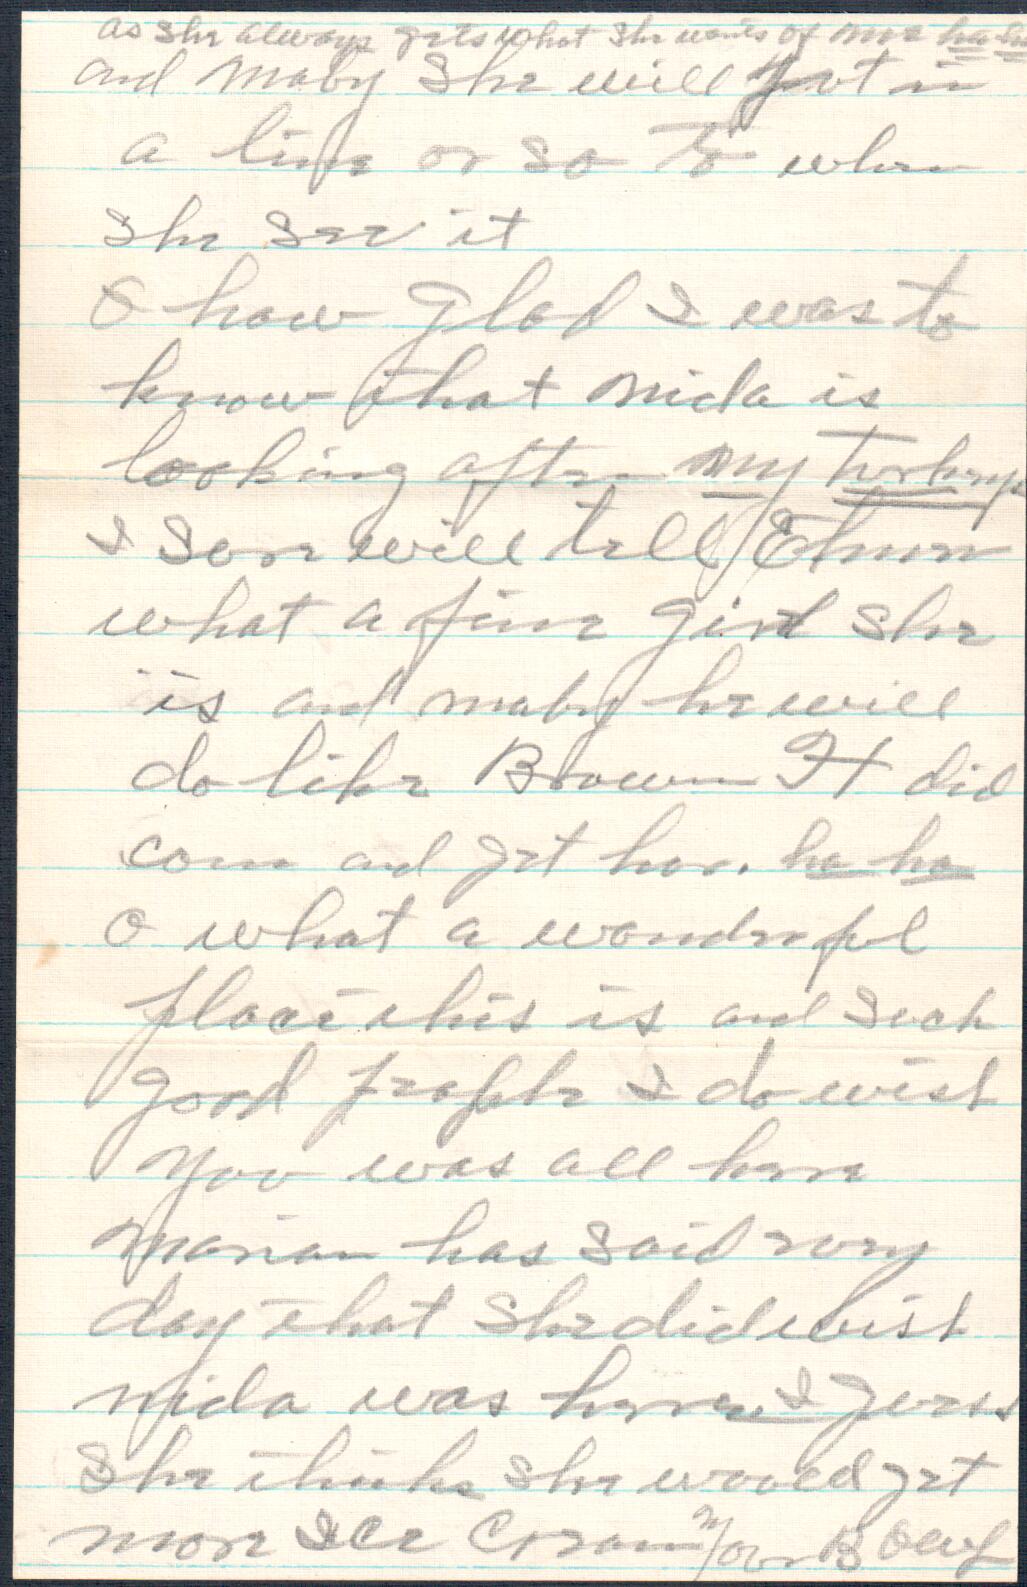 as she always gets what she wants of me ha ha
and maby she will put in
a line or so to when
she see it
O how glad I was to
know that nida is
looking after my turkeys
I sore will tell
what a fine girl she
is and maby he will
do like Brown H did
com and get hor. ha ha
O what a wondrful
place this is and such
good people I do wish
you was all here
marian has said every
day that she did wish
nida was here I guess
she thinks she wooed get
more Ice Cream